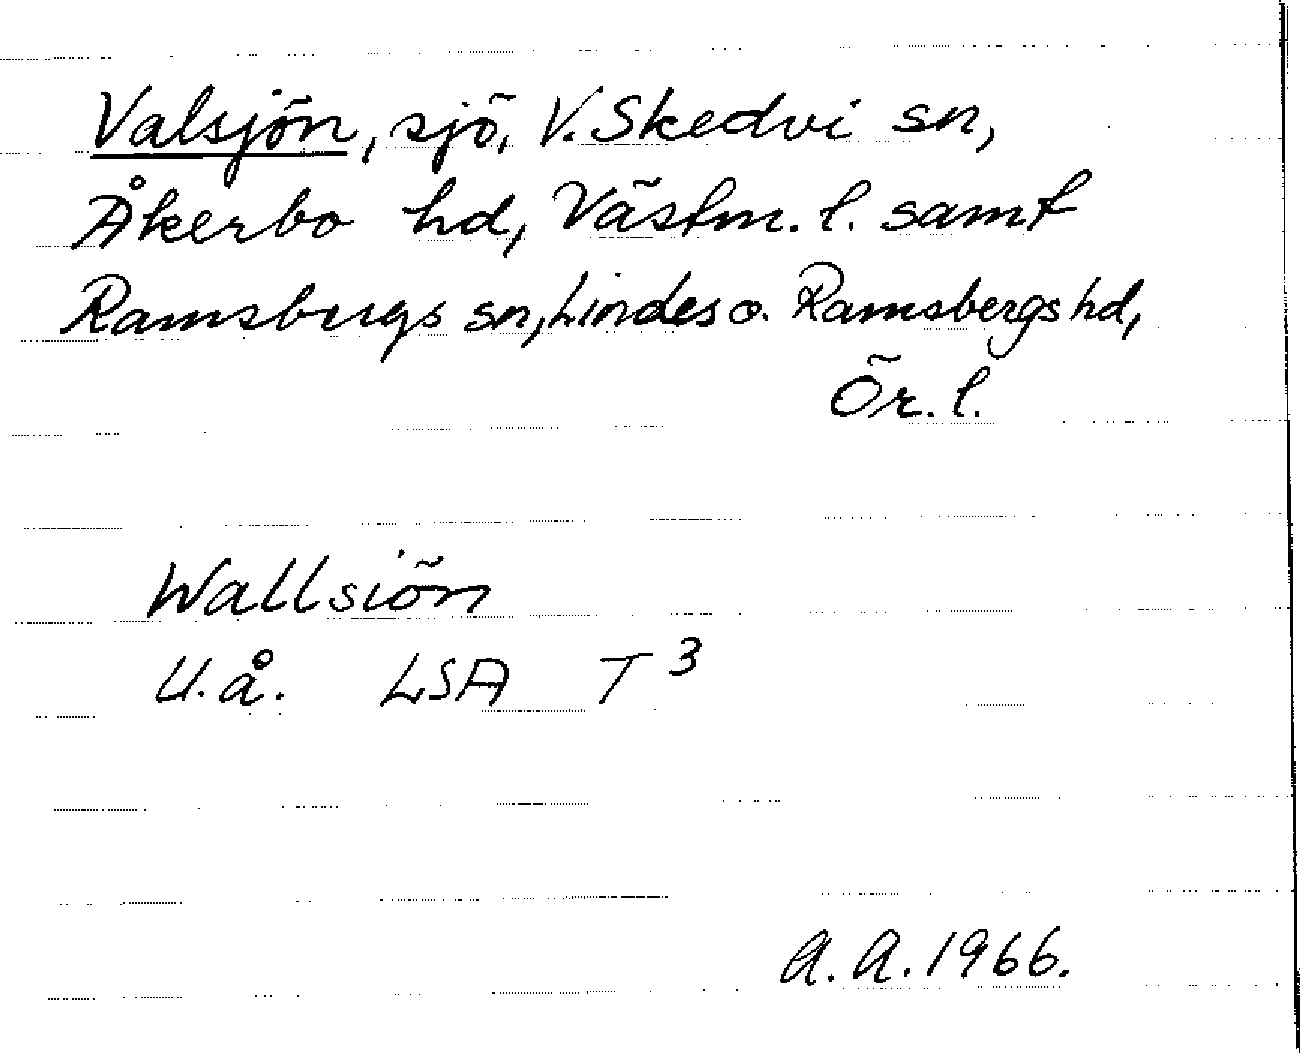 Valsjön, sjö, V. Skedvi sn,
Åkerbo hd, Västm. l. samt
Ramsbergs sn, Lindes o. Ramsbergs hd,
Ör. l.
Wallsiön
U.å. LSA T 3
A.A. 1966.